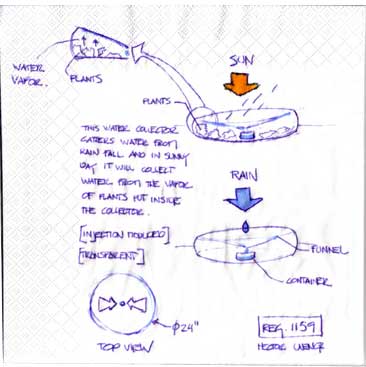 WATER
VAPOR.
PLANTS
SUN
PLANTS
THIS WATER COLLECTOR
GATERS WATER FROM
RAIN FALL AND IN SUNNY
DAY IT WILL COLLECT
WATER FROM THE VAPOR
OF PLANTS PUT INSIDE
THE COLLECTOR.
RAIN
[INJECTION MOULDED]
[TRANSPARENT]
FUNNEL
CONTAINER
Φ24"
TOP VIEW
REG. 1159
HECTOR